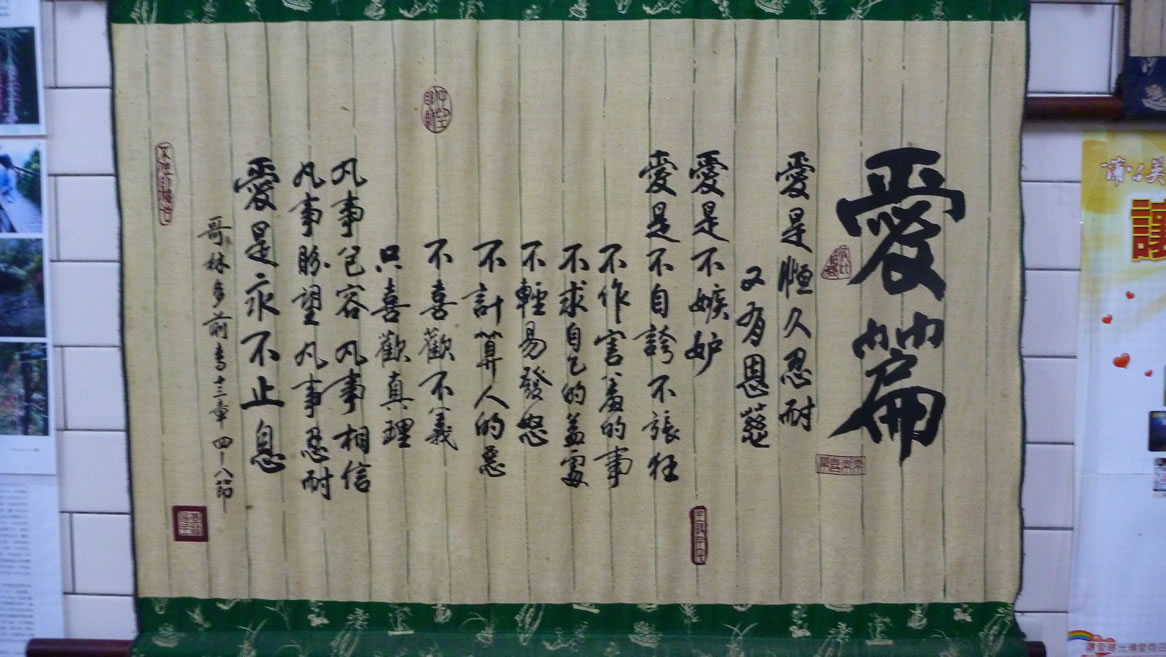 愛篇
愛是恒久忍耐
又有恩慈
愛是不嫉妒
愛是不自誇不張狂
不作害羞的事
不求自己的益處
不輕易發怒
不計算人的惡
不喜歡不義
只喜歡真理
凡事包容凡事相信
凡事盼望凡事忍耐
愛是永不止息
哥林多前書十三章四-八節
讓